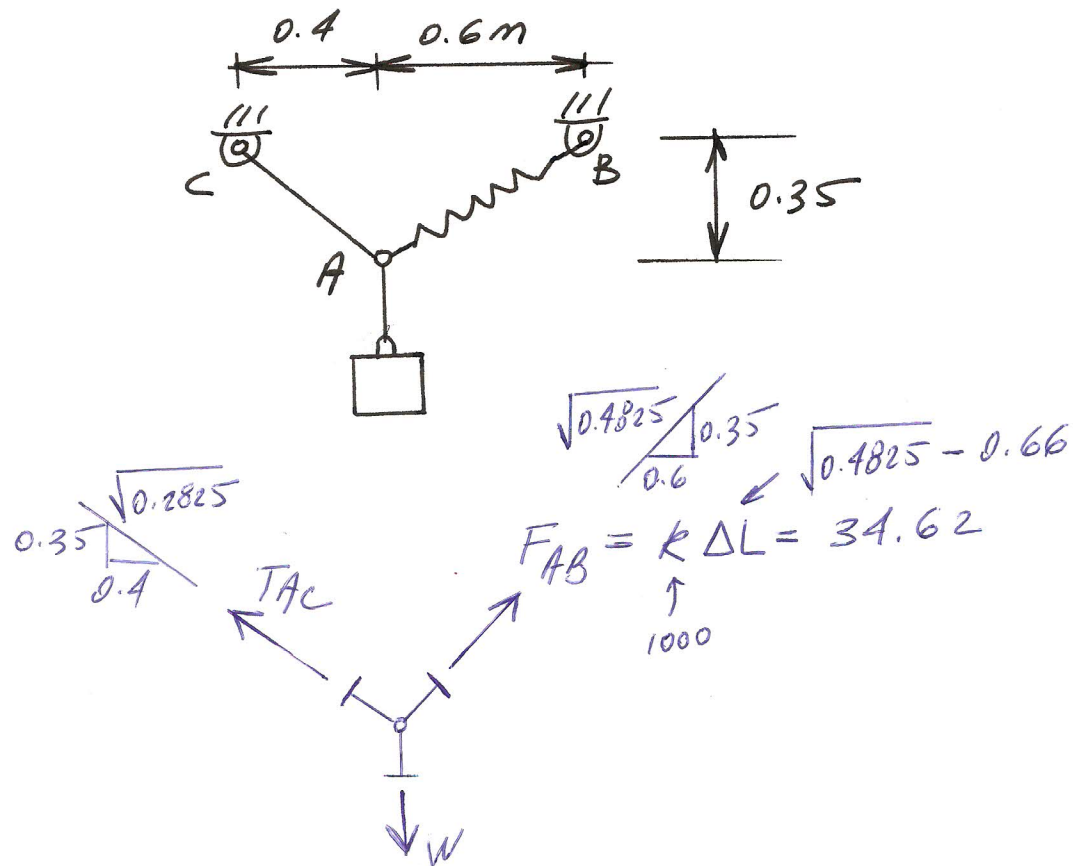 0.4 0.6m
C
B
0.35
A
√0.4825 0.35
0.6
√0.4825 - 0.66
√0.2825
0.35
0.4
F_AB = k ΔL = 34.62
T_AC
1000
W